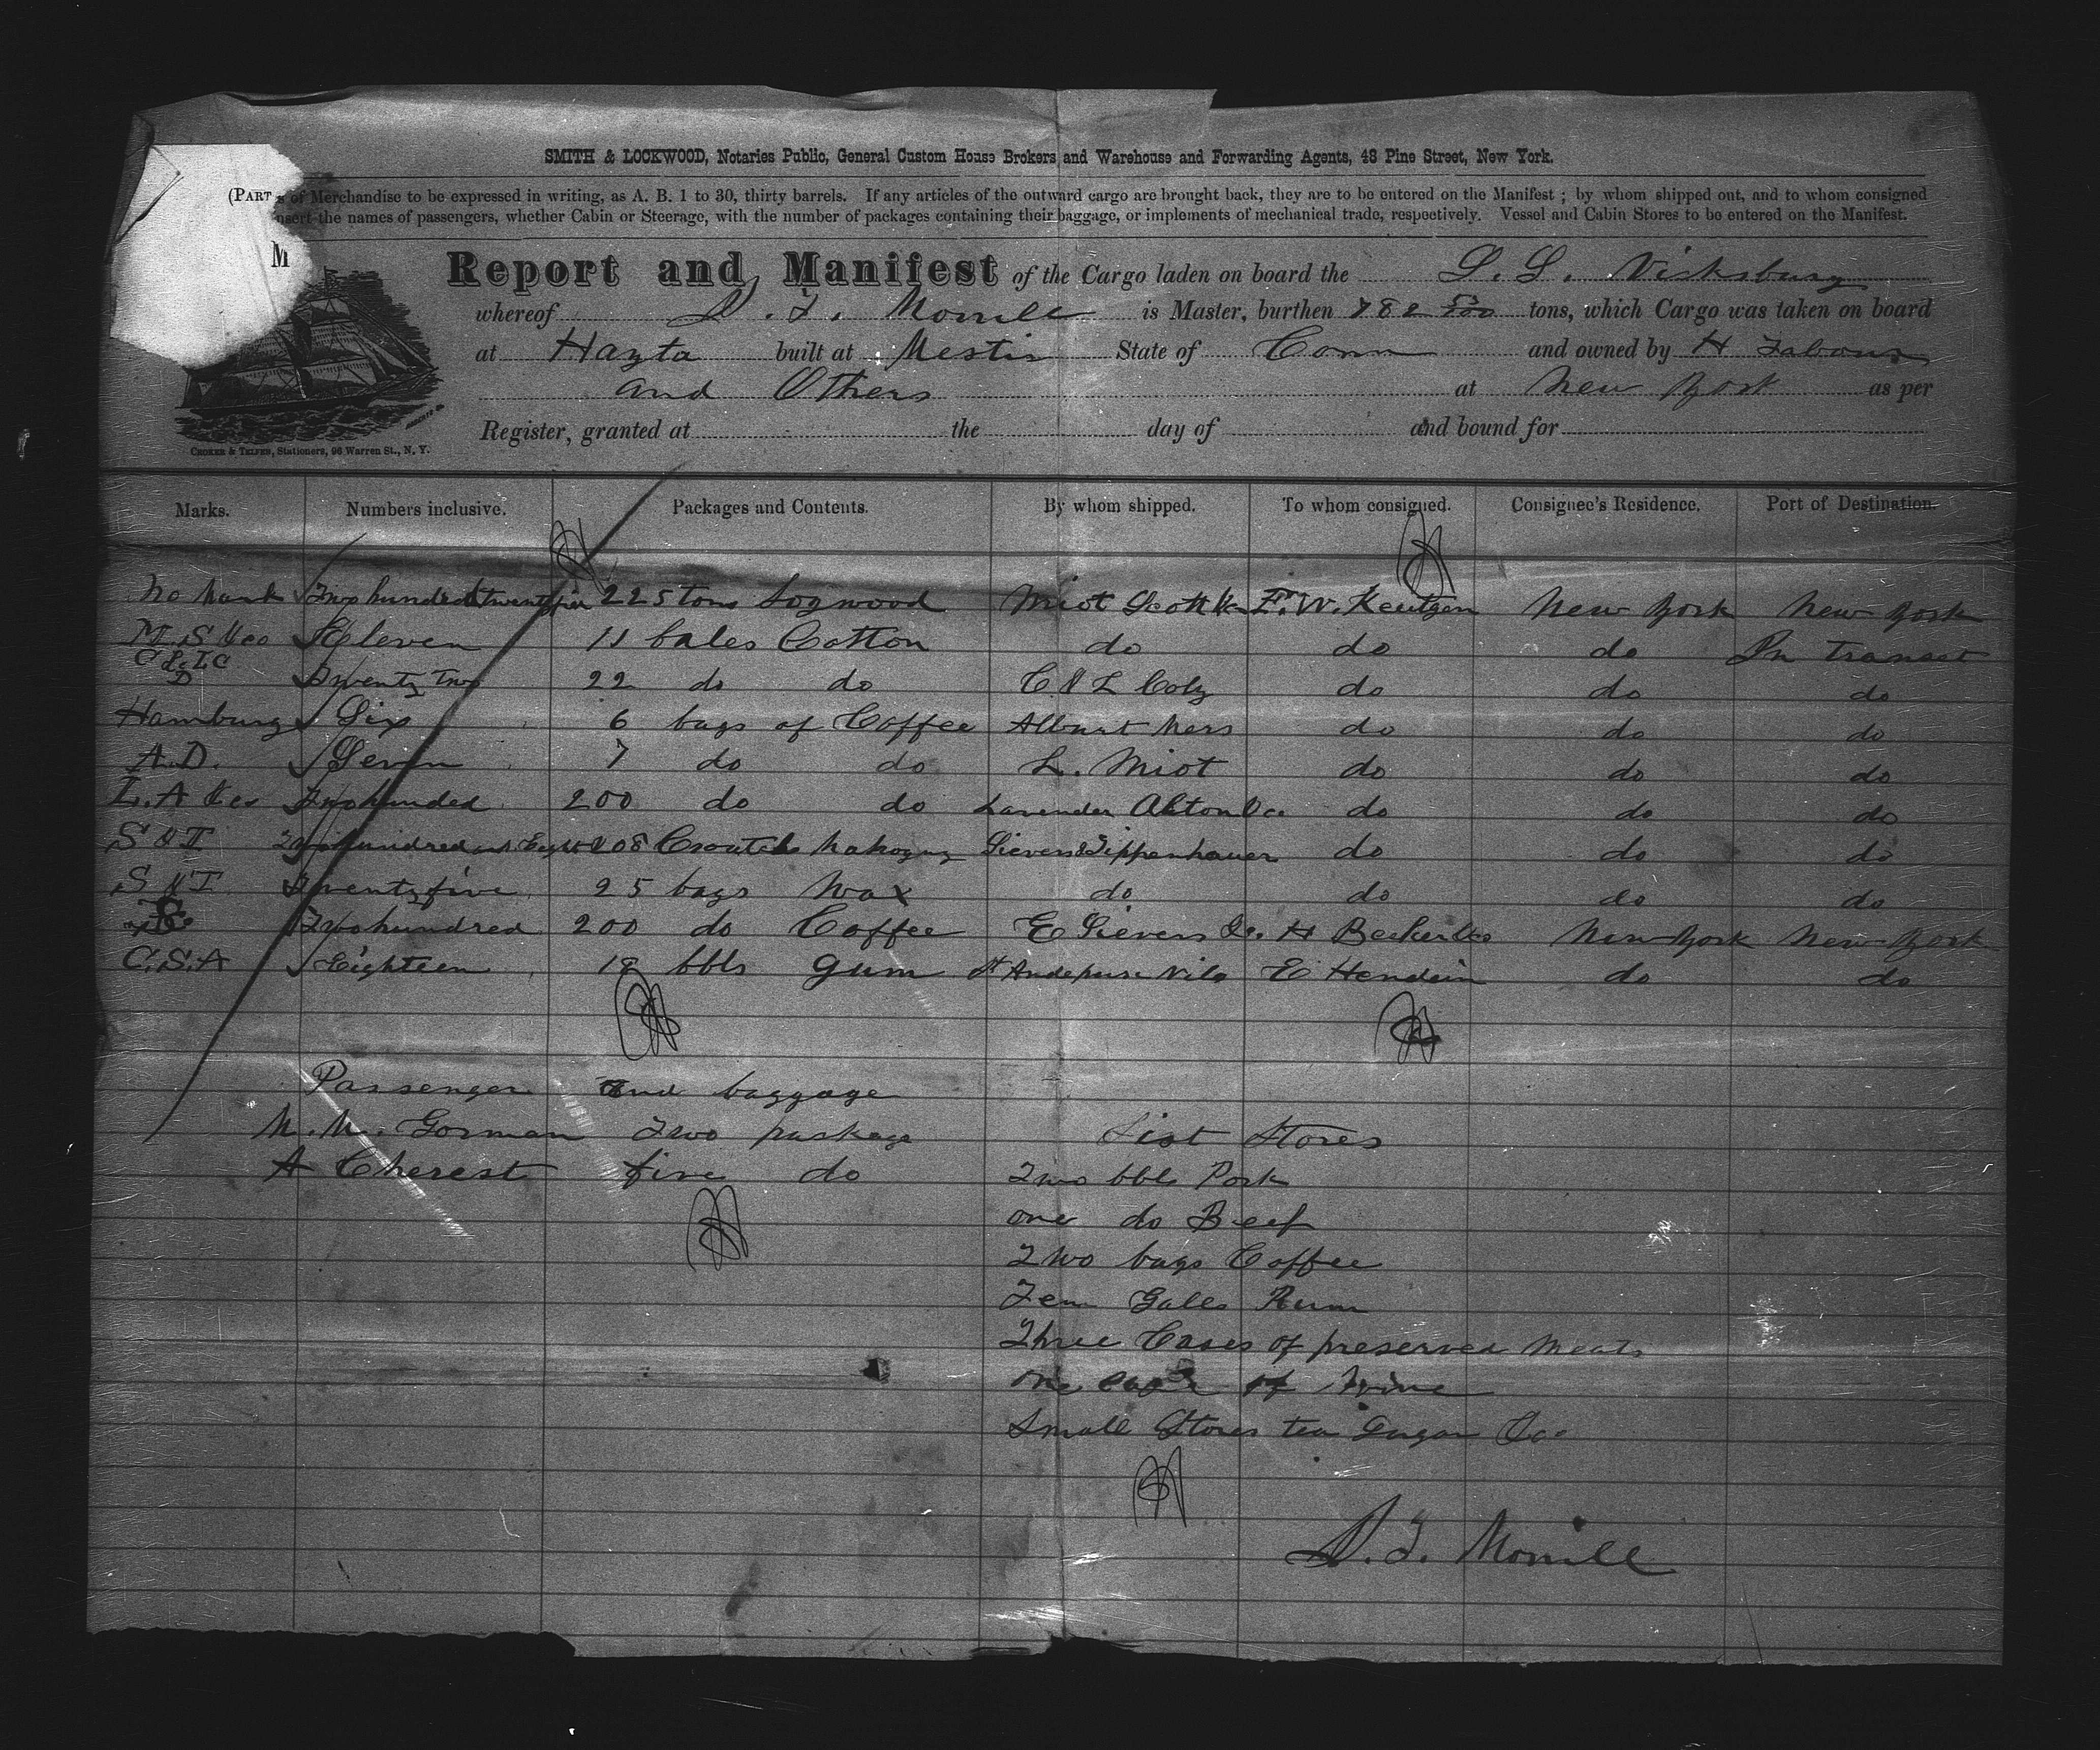 SMITH & LOCKWOOD, Notaries Public, General Custom House Brokers and Warehouse and Forwarding Agents, 48 Pine Street, New York.
(PART of Merchandise to be expressed in writing, as A. B. 1 to 30, thirty barrels. If any articles of the outward cargo are brought back, they are to be entered on the Manifest ; by whom shipped out, and to whom consigned
nsert the names of passengers, whether Cabin or Steerage, with the number of packages containing their baggage, or implements of mechanical trade, respectively. Vessel and Cabin Stores to be entered on the Manifest.
M
Report and Manifest of the Cargo laden on board the S. S. Vicksburg
whereof D. F. Morrill is Master, burthen 782 tons, which Cargo was taken on board
at Hayta built at Mestic State of Conn and owned by H
and Others at New York as per
Register, granted at the day of and bound for
CROKER & TELFER, Stationers, 96 Warren St., N. Y.
Marks. Numbers inclusive. Packages and Contents. By whom shipped. To whom consigned. Consignee's Residence. Port of Destination.
No Mark Two hundred twenty five 225 tons Logwood Miot Scott &co F. W. Keutgen New York New York
M. S &co Eleven 11 bales Cotton do do do In transet
C L D Twenty Two 22 do do C & L Coty do do do
Hamburg Six 6 bags of Coffee do do do
A. D. Seven 7 do do L. Miot do do do
L. A &co Two hundred 200 do do Lavender &co do do do
S & T Two hundred and Eight 208 Croutch Mahogny Sievers & Tippenhauer do do do
S & T Twenty five 25 bags Wax do do do do
Two hundred 200 do Coffee E Sievers &c. H Becker &co New York New York
C. S. A Eighteen 18 bbls Gum E do do
Passenger and baggage
M. M. Gorman Two package
A Cherest five do
List Stores
Two bbls Pork
one do Beef
Two bags Coffee
Ten Galls Rum
Three Cases of preserved Meats
One case of Wine
Small Stores tea Sugar &co
D. F. Morrill